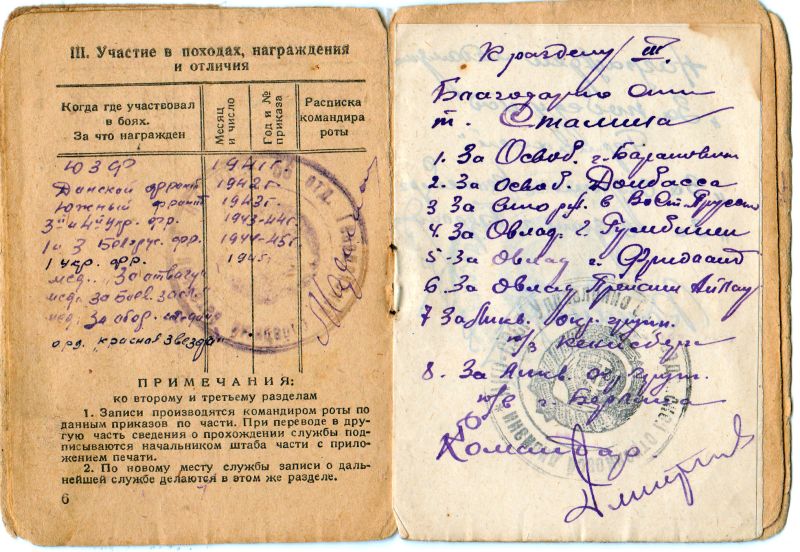 III. Участие в походах, награждения
и отличия
Когда где участвовал
в боях.
За что награжден
Месяц
и число
Год и №
приказа
Расписка
командира
роты
ЮЗФ 1941г.
Донской фронт 1942г.
Южный фронт 1943г.
3й и 4й Укр. фр. 1943-44г.
1 и 3 Белорус. фр. 1944-45г.
1 укр. фр. 1945г.
мед. „За отвагу"
мед. За боев. засл.
мед. За обор.
орд. красная Звезда"
ПРИМЕЧАНИЯ:
ко второму и третьему разделам
1. Записи производятся командиром роты по
данным приказов по части. При переводе в дру-
гую часть сведения о прохождении службы под-
писываются начальником штаба части с прило-
жением печати.
2. По новому месту службы записи о даль-
нейшей службе делаются в этом же разделе.
6
К разделу III.
Благодарно
т. Сталина
1. За Освоб. г. Барановичи
2. За освоб. Донбасса
3 За в Вост. Пруссию
4. За Овлад. г. Гумбинен
5. За овлад г. Фридланд
6. За овлад Прейсиш Айлау
7 За Ликв. окр. групп.
ю/з Кенисберг
8. За Ликв. окр. групп.
ю/в г. Берлина
Командир